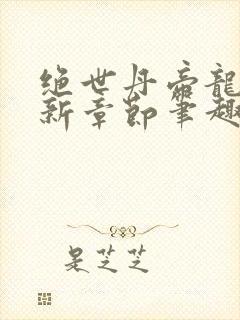 绝世丹帝龍
新章节笔趣
是芝芝